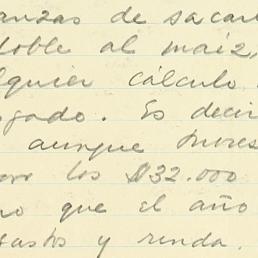 anzas de sacar
doble al maíz,
lquier cálculo
gado. Es decir
aunque
los $32.000
que el año
gastos y renda.